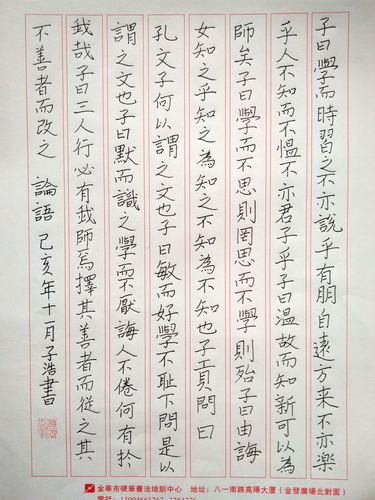 子曰學而時習之不亦說乎有朋自遠方来不亦楽
乎人不知而不愠不亦君子乎子曰温故而知新可以為
師矣子曰學而不思則罔思而不學則殆子曰由誨
女知之乎知之為知之不知為不知也子貢問曰
孔文子何以謂之文也子曰敏而好學不耻下問是以
謂之文也子曰默而識之學而不厭誨人不倦何有於
我哉子曰三人行必有我師焉擇其善者而從之其
不善者而改之 論語 己亥年十一月子浩書
金華市硬筆書法培訓中心 地址：八一南路高陽大厦（金發廣場北對面）